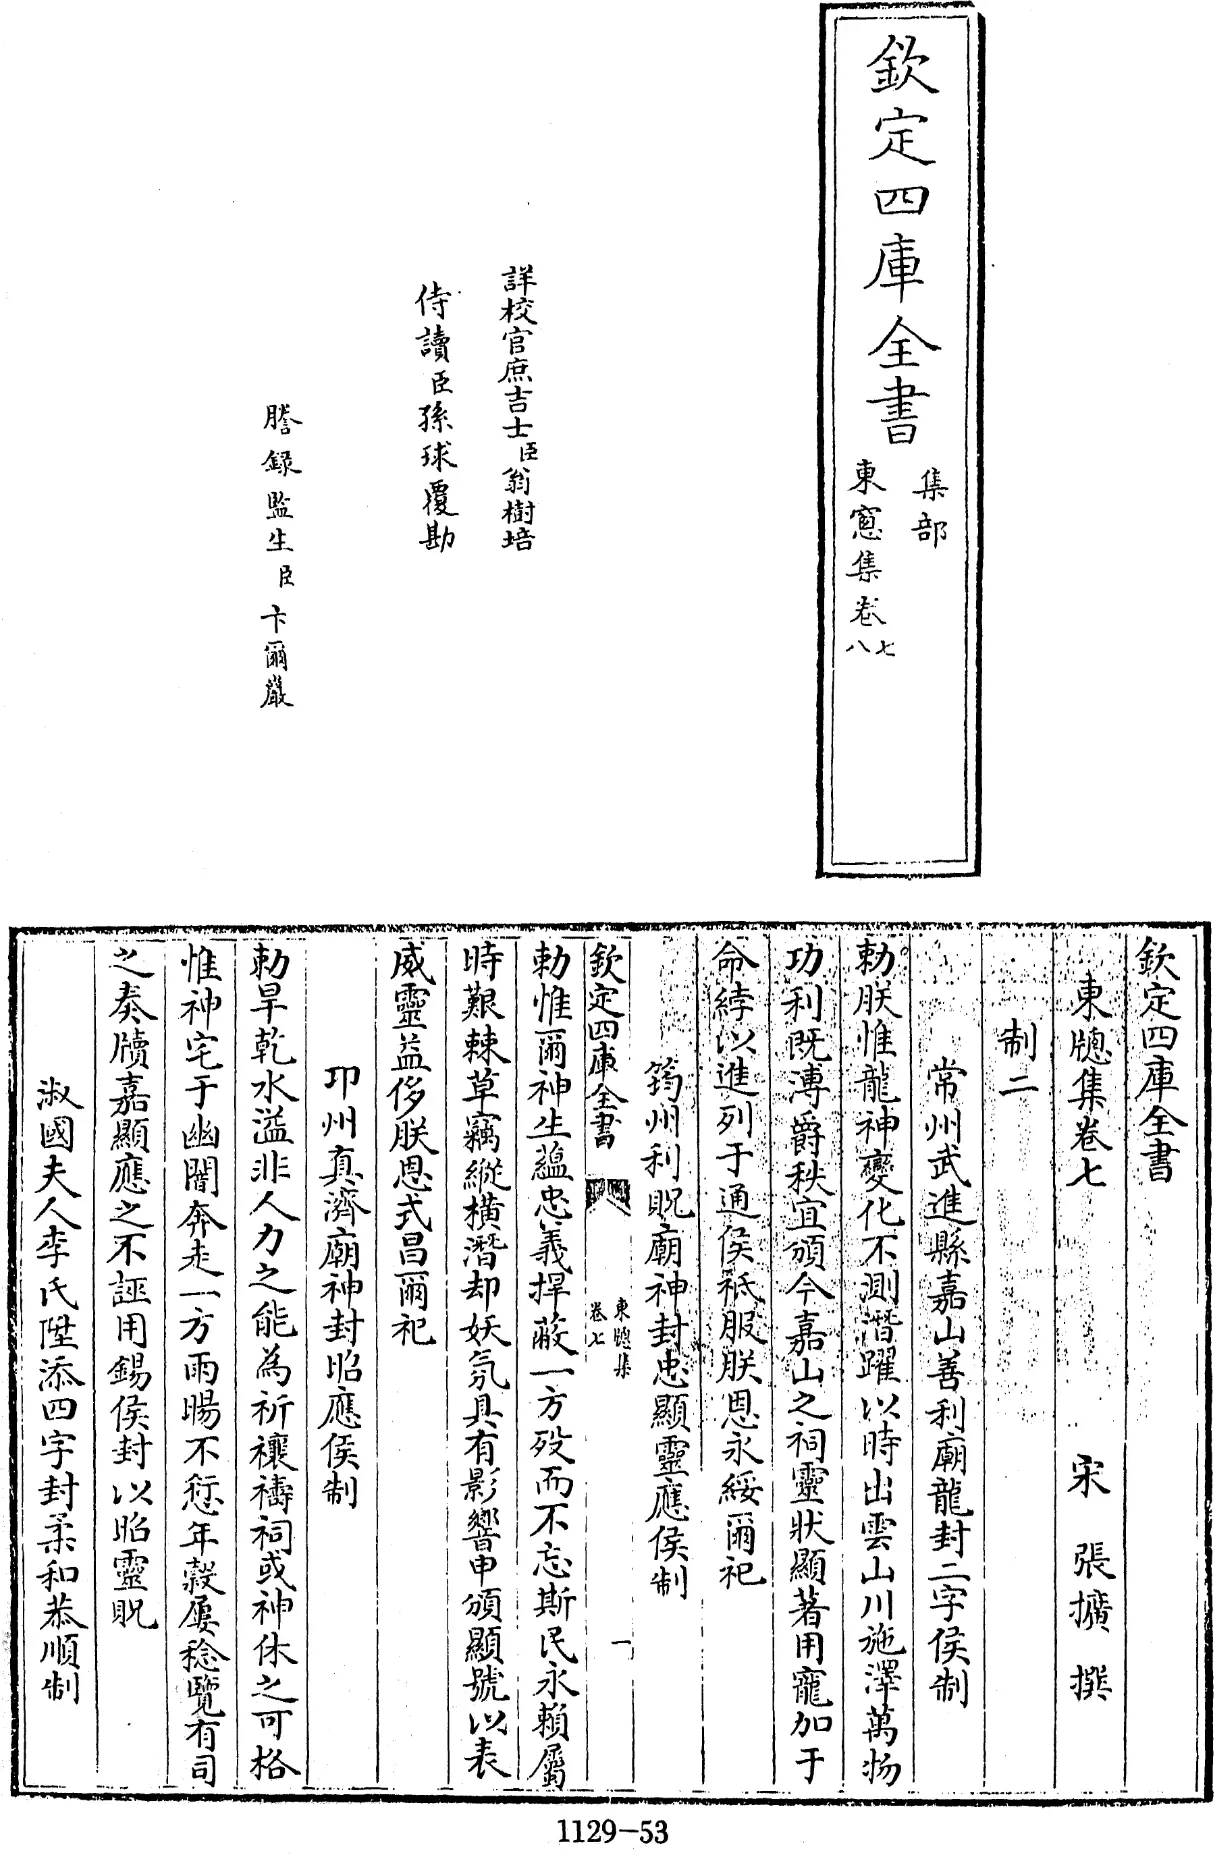 欽定四庫全書
集部
東窻集卷七
八
詳校官庶吉士臣翁樹培
侍讀臣孫球覆勘
謄録監生臣卞爾巖
欽定四庫全書
東牕集卷七 宋 張擴 撰
制二
常州武進縣嘉山善利廟龍封二字侯制
勅朕惟龍神變化不測潛躍以時出雲山川施澤萬物
功利既溥爵秩宜頒今嘉山之祠靈狀顯著用寵加于
命綍以進列于通侯祗服朕恩永綏爾祀
筠州利貺廟神封忠顯靈應侯制
欽定四庫全書
東牕集
卷七
一
勅惟爾神生蘊忠義捍蔽一方殁而不忘斯民永賴屬
時艱棘草竊縱橫潛却妖氛具有影響申頒顯號以表
威靈益侈朕恩式昌爾祀
卭州真濟廟神封昭應侯制
勅旱乾水溢非人力之能為祈禳禱祠或神休之可格
惟神宅于幽闇奔走一方雨暘不愆年穀屢稔覽有司
之奏牘嘉顯應之不誣用錫侯封以昭靈貺
淑國夫人李氏陞添四字封柔和恭順制
1129-53